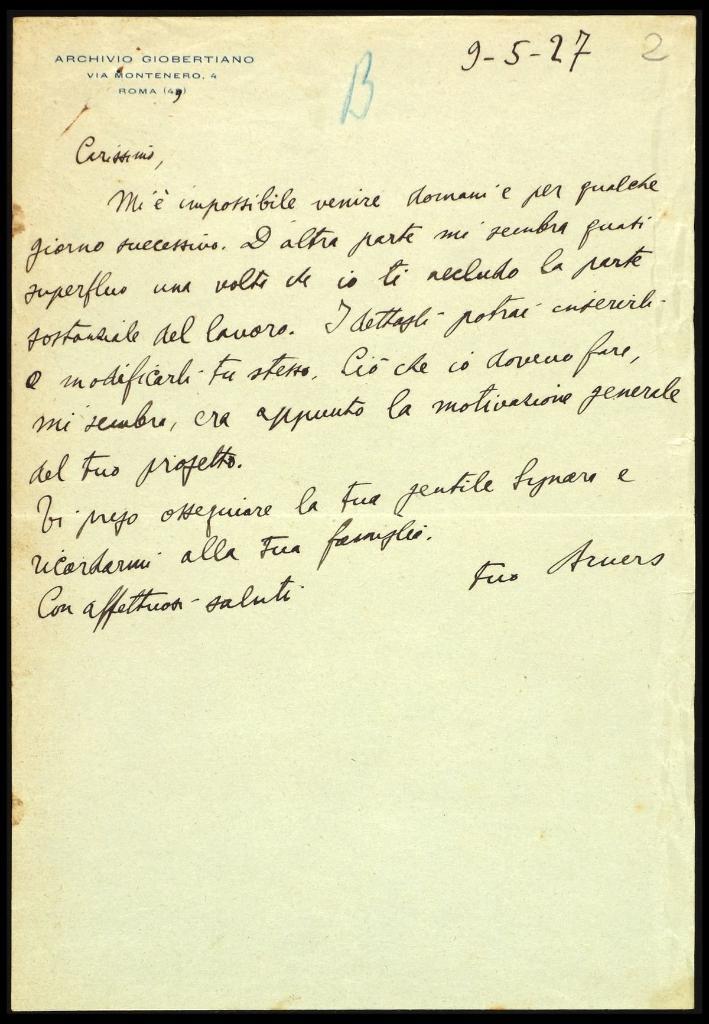 ARCHIVIO GIOBERTIANO
VIA MONTENERO, 4
ROMA (49)
9-5-27
2
B
Carissimo,
Mi è impossibile venire domani e per qualche
giorno successivo. D'altra parte mi sembra quasi
superfluo una volta che io ti accludo la parte
sostanziale del lavoro. I dettagli potrai inserirli
o modificarli tu stesso. Ciò che io dovevo fare,
mi sembra, era appunto la motivazione generale
del tuo progetto.
Ti prego ossequiare la tua gentile Signora e
ricordarmi alla tua famiglia.
Con affettuosi saluti
tuo